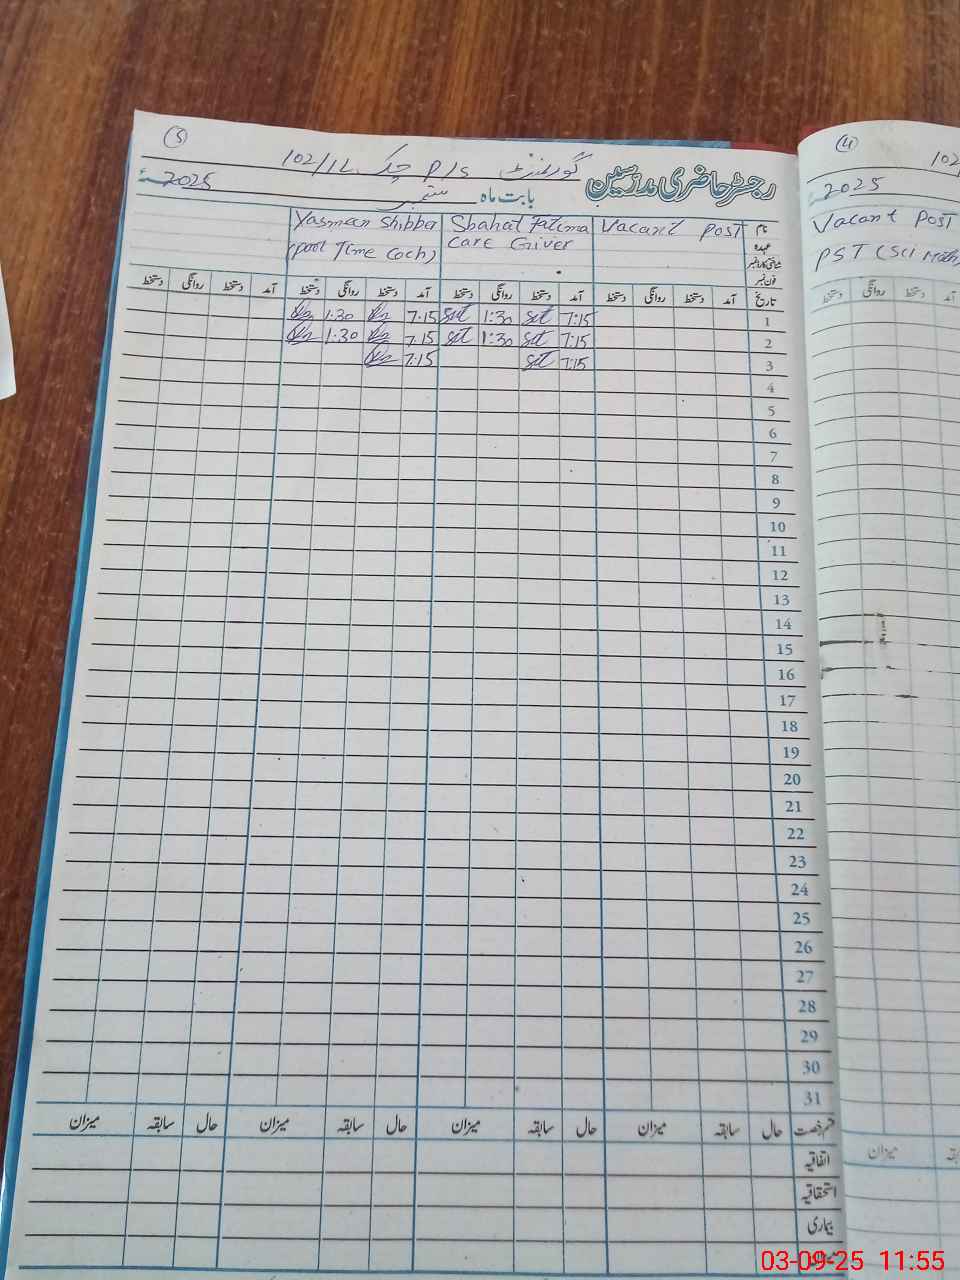 (5)
گورنمنٹ P/S چک 102/1L
رجسٹر حاضری مدرسین
بابت ماہ ستمبر 2025ء
نام Vacant Post Shahat Fatima Yasmeen Shibba
عہدہ Care Giver (part Time Coch)
شناختی کارڈ نمبر
فون نمبر
تاریخ آمد دستخط روانگی دستخط آمد دستخط روانگی دستخط آمد دستخط روانگی دستخط آمد دستخط روانگی دستخط
1 7:15 1:30 7:15 1:30
2 7:15 1:30 7:15 1:30
3 7:15 7:15
4
5
6
7
8
9
10
11
12
13
14
15
16
17
18
19
20
21
22
23
24
25
26
27
28
29
30
31
قسم رخصت حال سابقہ میزان حال سابقہ میزان حال سابقہ میزان حال سابقہ میزان
اتفاقیہ
استحقاقیہ
بیماری
میزان
(4)
102
2025
Vacant Post
PST (Sci Math)
آمد دستخط روانگی دستخط
میزان
03-09-25 11:55